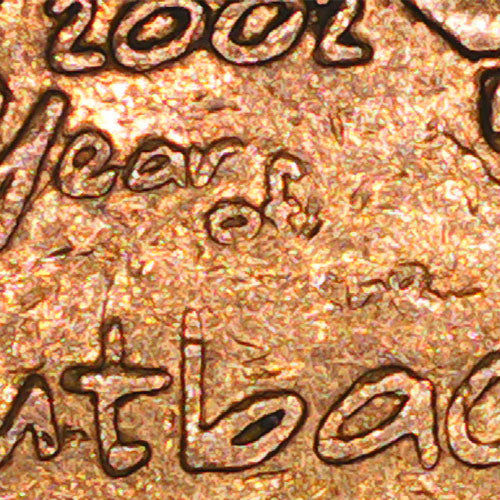 2002
Year
of
utbac